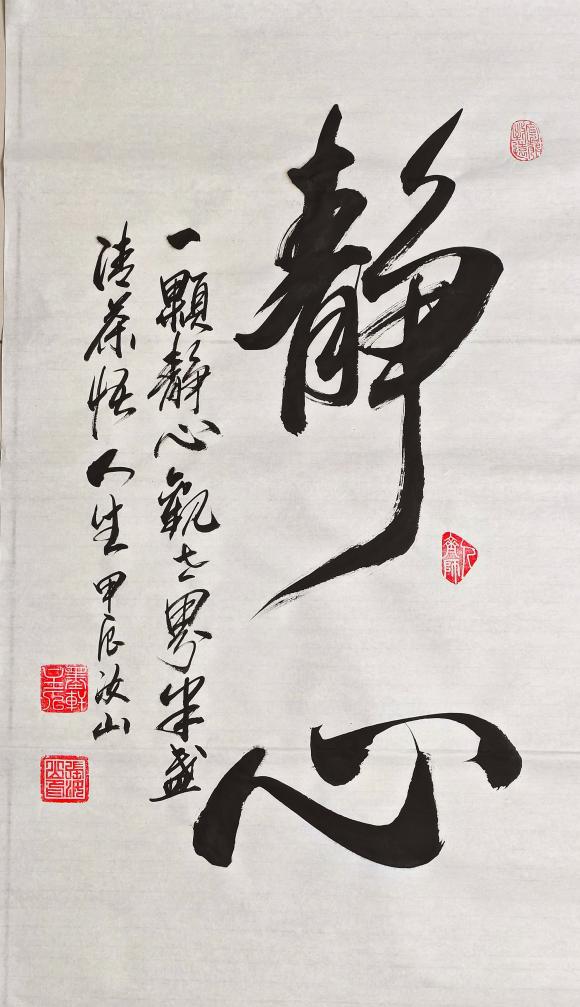 静心
一颗静心观世界半盏
清茶悟人生甲辰汝山